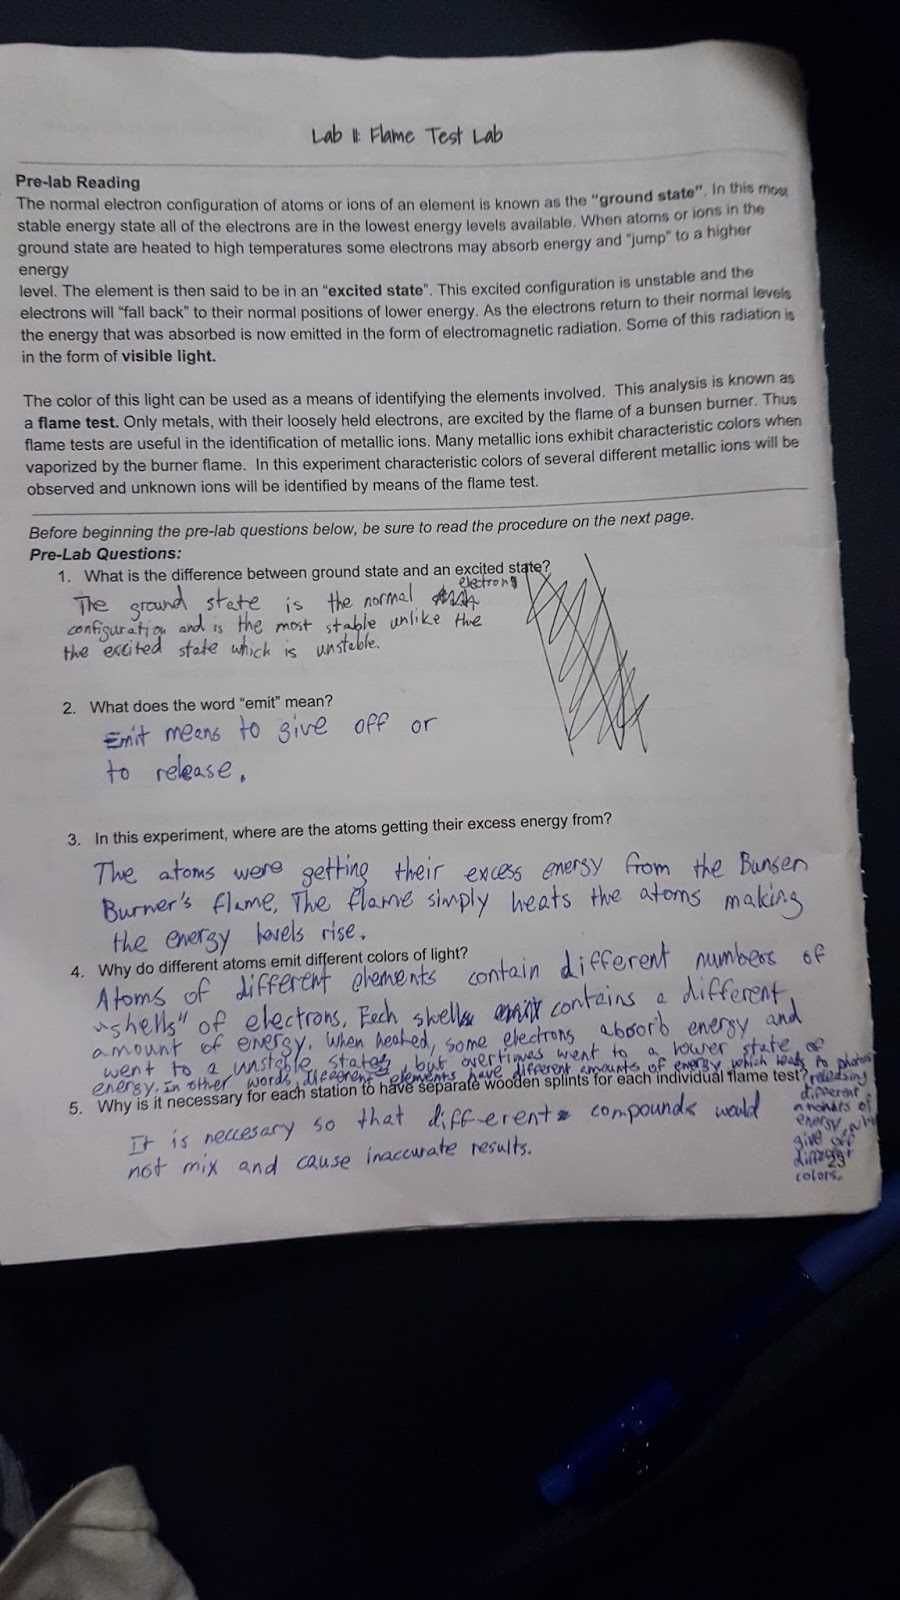 Lab 11: Flame Test Lab
Pre-lab Reading
The normal electron configuration of atoms or ions of an element is known as the "ground state". In this most
stable energy state all of the electrons are in the lowest energy levels available. When atoms or ions in the
ground state are heated to high temperatures some electrons may absorb energy and "jump" to a higher
energy
level. The element is then said to be in an "excited state". This excited configuration is unstable and the
electrons will "fall back" to their normal positions of lower energy. As the electrons return to their normal levels
the energy that was absorbed is now emitted in the form of electromagnetic radiation. Some of this radiation is
in the form of visible light.
The color of this light can be used as a means of identifying the elements involved. This analysis is known as
a flame test. Only metals, with their loosely held electrons, are excited by the flame of a bunsen burner. Thus
flame tests are useful in the identification of metallic ions. Many metallic ions exhibit characteristic colors when
vaporized by the burner flame. In this experiment characteristic colors of several different metallic ions will be
observed and unknown ions will be identified by means of the flame test.
Before beginning the pre-lab questions below, be sure to read the procedure on the next page.
Pre-Lab Questions:
1. What is the difference between ground state and an excited state?
electrons
The ground state is the normal
configuration and is the most stable unlike the
the excited state which is unstable.
2. What does the word "emit" mean?
Emit means to give off or
to release.
3. In this experiment, where are the atoms getting their excess energy from?
The atoms were getting their excess energy from the Bunsen
Burner's flame. The flame simply heats the atoms making
the energy levels rise.
4. Why do different atoms emit different colors of light?
Atoms of different elements contain different numbers of
"shells" of electrons. Each shell contains a different
amount of energy. When heated, some electrons absorb energy and
went to a unstable states, but overtimes went to a lower state of
energy. In other words, different elements have different amounts of energy which leads to photons
releasing
different
amounts of
energy
give off
different
colors.
5. Why is it necessary for each station to have separate wooden splints for each individual flame test?
It is neccesary so that different compounds would
not mix and cause inaccurate results.
23